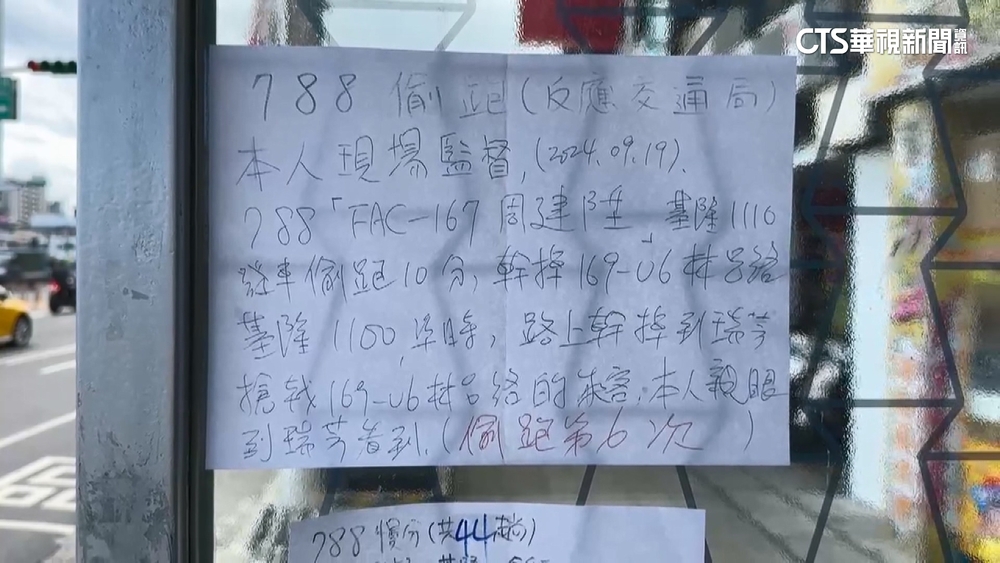 CTS華視新聞資訊
788 偷跑(反應交通局)
本人現場監督,(2024.09.19).
788「FAC-167 周建陞」基隆1110
發車偷跑10分,幹掉169-U6林呂給
基隆1100準時,路上幹掉到瑞芳
搶我169-U6林呂給的乘客.本人親眼
到瑞芳看到.(偷跑第6次 )
788慢分(共44趟)